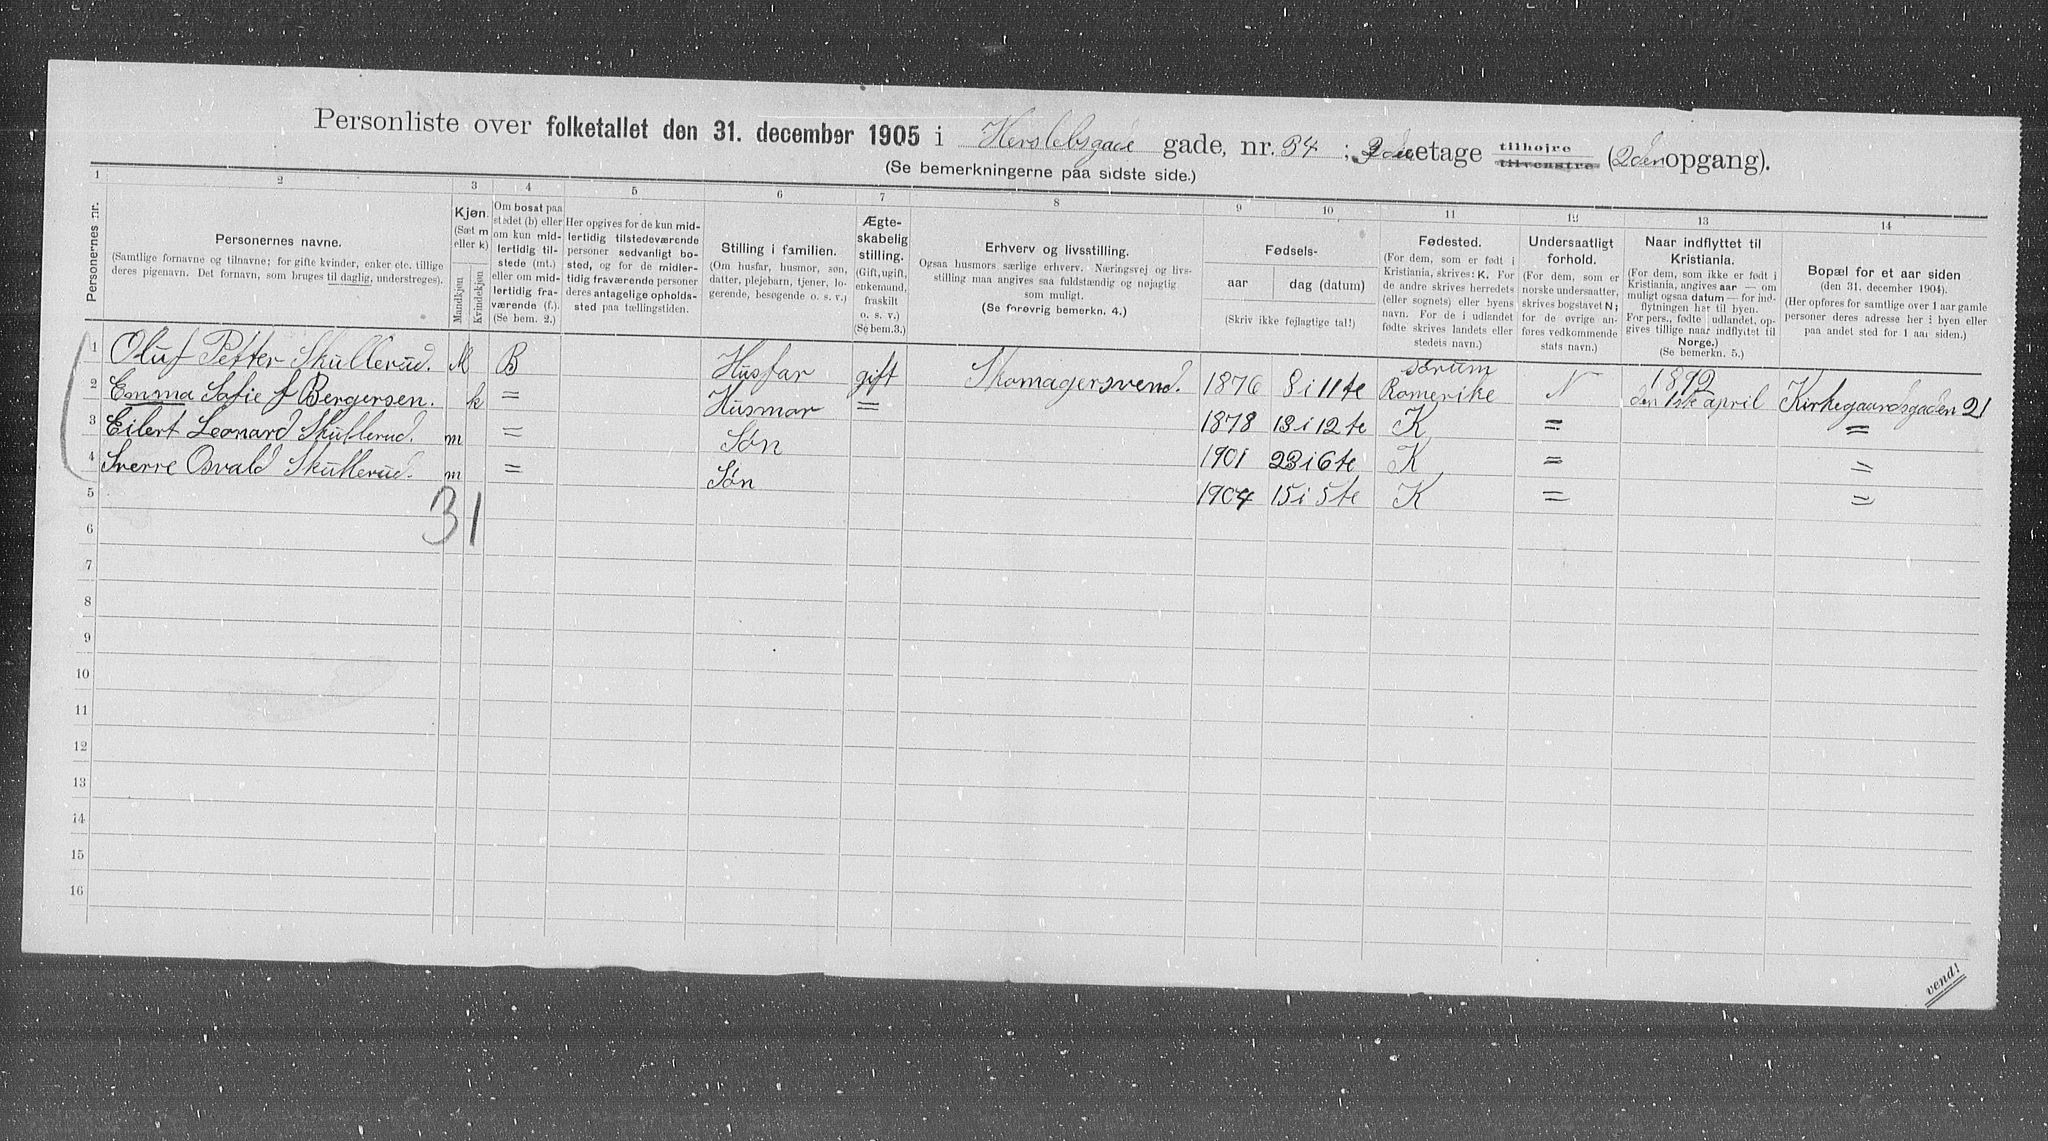 Personliste over folketallet den 31. december 1905 i Herslebsgade gade, nr. 34 ; 3die etage tilhøjre tilvenstre (2den opgang).
(Se bemerkningerne paa sidste side.)
1 2 3 4 5 6 7 8 9 10 11 12 13 14
Personernes nr.
Personernes navne.
(Samtlige fornavne og tilnavne; for gifte kvinder, enker etc. tillige
deres pigenavn. Det fornavn, som bruges til daglig, understreges).
Kjøn.
(Sæt m
eller k)
Mandkjøn
Kvindekjøn
Om bosat paa
stedet (b) eller
om kun mid-
lertidig til-
stede (mt.)
eller om mid-
lertidig fra-
værende (f.).
(Se bem. 2.)
Her opgives for de kun mid-
lertidig tilstedeværende
personer sedvanligt bo-
sted, og for de midler-
tidig fraværende personer
deres antagelige opholds-
sted paa tællingstiden.
Stilling i familien.
(Om husfar, husmor, søn,
datter, plejebarn, tjener, lo-
gerende, besøgende o. s. v.)
Ægte-
skabelig
stilling.
(Gift, ugift,
enkemand,
fraskilt
o. s. v.)
(Se bem.3.)
Erhverv og livsstilling.
Ogsaa husmors særlige erhverv. Næringsvej og livs-
stilling maa angives saa fuldstændig og nøjagtig
som muligt.
(Se forøvrig bemerkn. 4.)
Fødsels-
aar
dag (datum)
(Skriv ikke fejlagtige tal!)
Fødested.
(For dem, som er født i
Kristiania, skrives: K. For
de andre skrives herredets
(eller sognets) eller byens
navn. For de i udlandet
fødte skrives landets eller
stedets navn.)
Undersaatligt
forhold.
(For dem, som er
norske undersaatter,
skrives bogstavet N;
for de øvrige an-
føres vedkommende
stats navn.)
Naar indflyttet til
Kristiania.
(For dem, som ikke er født i
Kristiania, angives aar — om
muligt ogsaa datum — for ind-
flytningen her til byen.
For pers., fødte i udlandet, op-
gives tillige naar indflyttet til
Norge.)
(Se bemerkn. 5.)
Bopæl for et aar siden
(den 31. december 1904).
(Her opføres for samtlige over 1 aar gamle
personer deres adresse her i byen eller
paa andet sted for 1 aar siden.)
1 Oluf Petter Skullerud. M B Husfar gift Skomagersvend. 1876 8 i 11te Sørum Romerike N 1892 den 1ste april Kirkegaardsgaden 21
2 Emma Sofie f Bergersen. k = Husmor = 1878 13 i 12te K = =
3 Eilert Leonard Skullerud. m = Søn 1901 23 i 6te K = =
4 Sverre Osvald Skullerud. m = Søn 1904 15 i 5te K = =
5
3 1
6
7
8
9
10
11
12
13
14
15
16
vend!